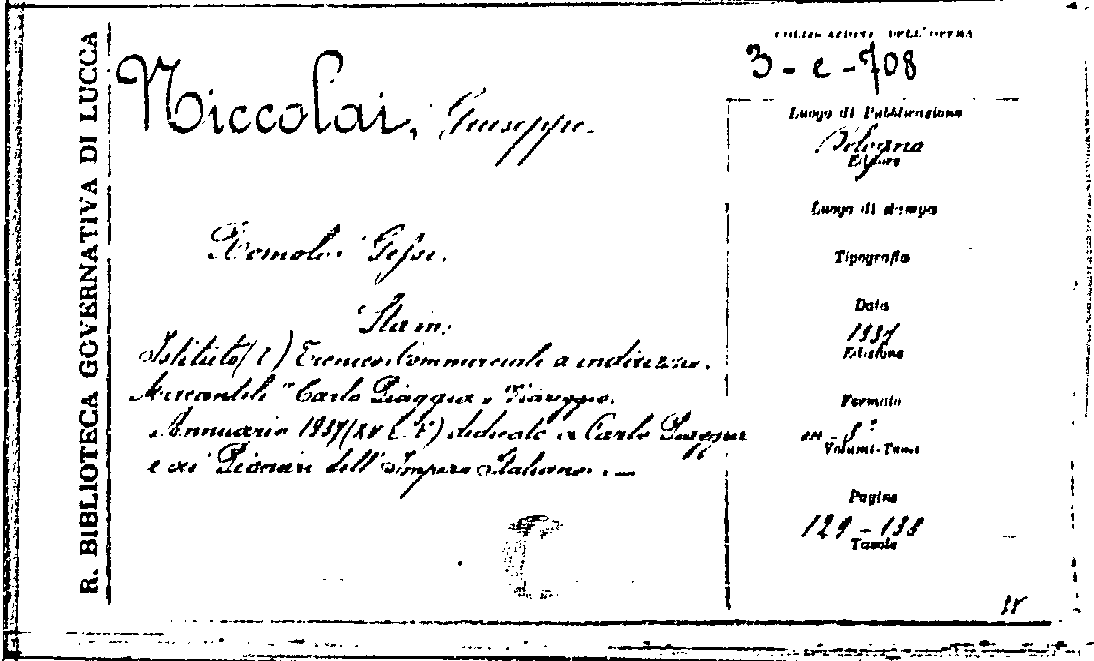 R. BIBLIOTECA GOVERNATIVA DI LUCCA
COLLOCAZIONE DELL'OPERA
3-c-708
Niccolai, Giuseppe.
Luogo di Pubblicazione
Bologna
Editore
Luogo di stampa
Romolo Gessi.
Tipografia
Data
1937
Edizione
Sta in:
Istituto (R) Tecnico Commerciale a indirizzo
Mercantile "Carlo Piaggia" Viareggio.
Annuario 1937 (XV E. F.) dedicato a Carlo Piaggia
e ai Pionieri dell'Impero Italiano. —
Formato
in-8°
Volumi-Tomi
Pagine
129-138
Tavole